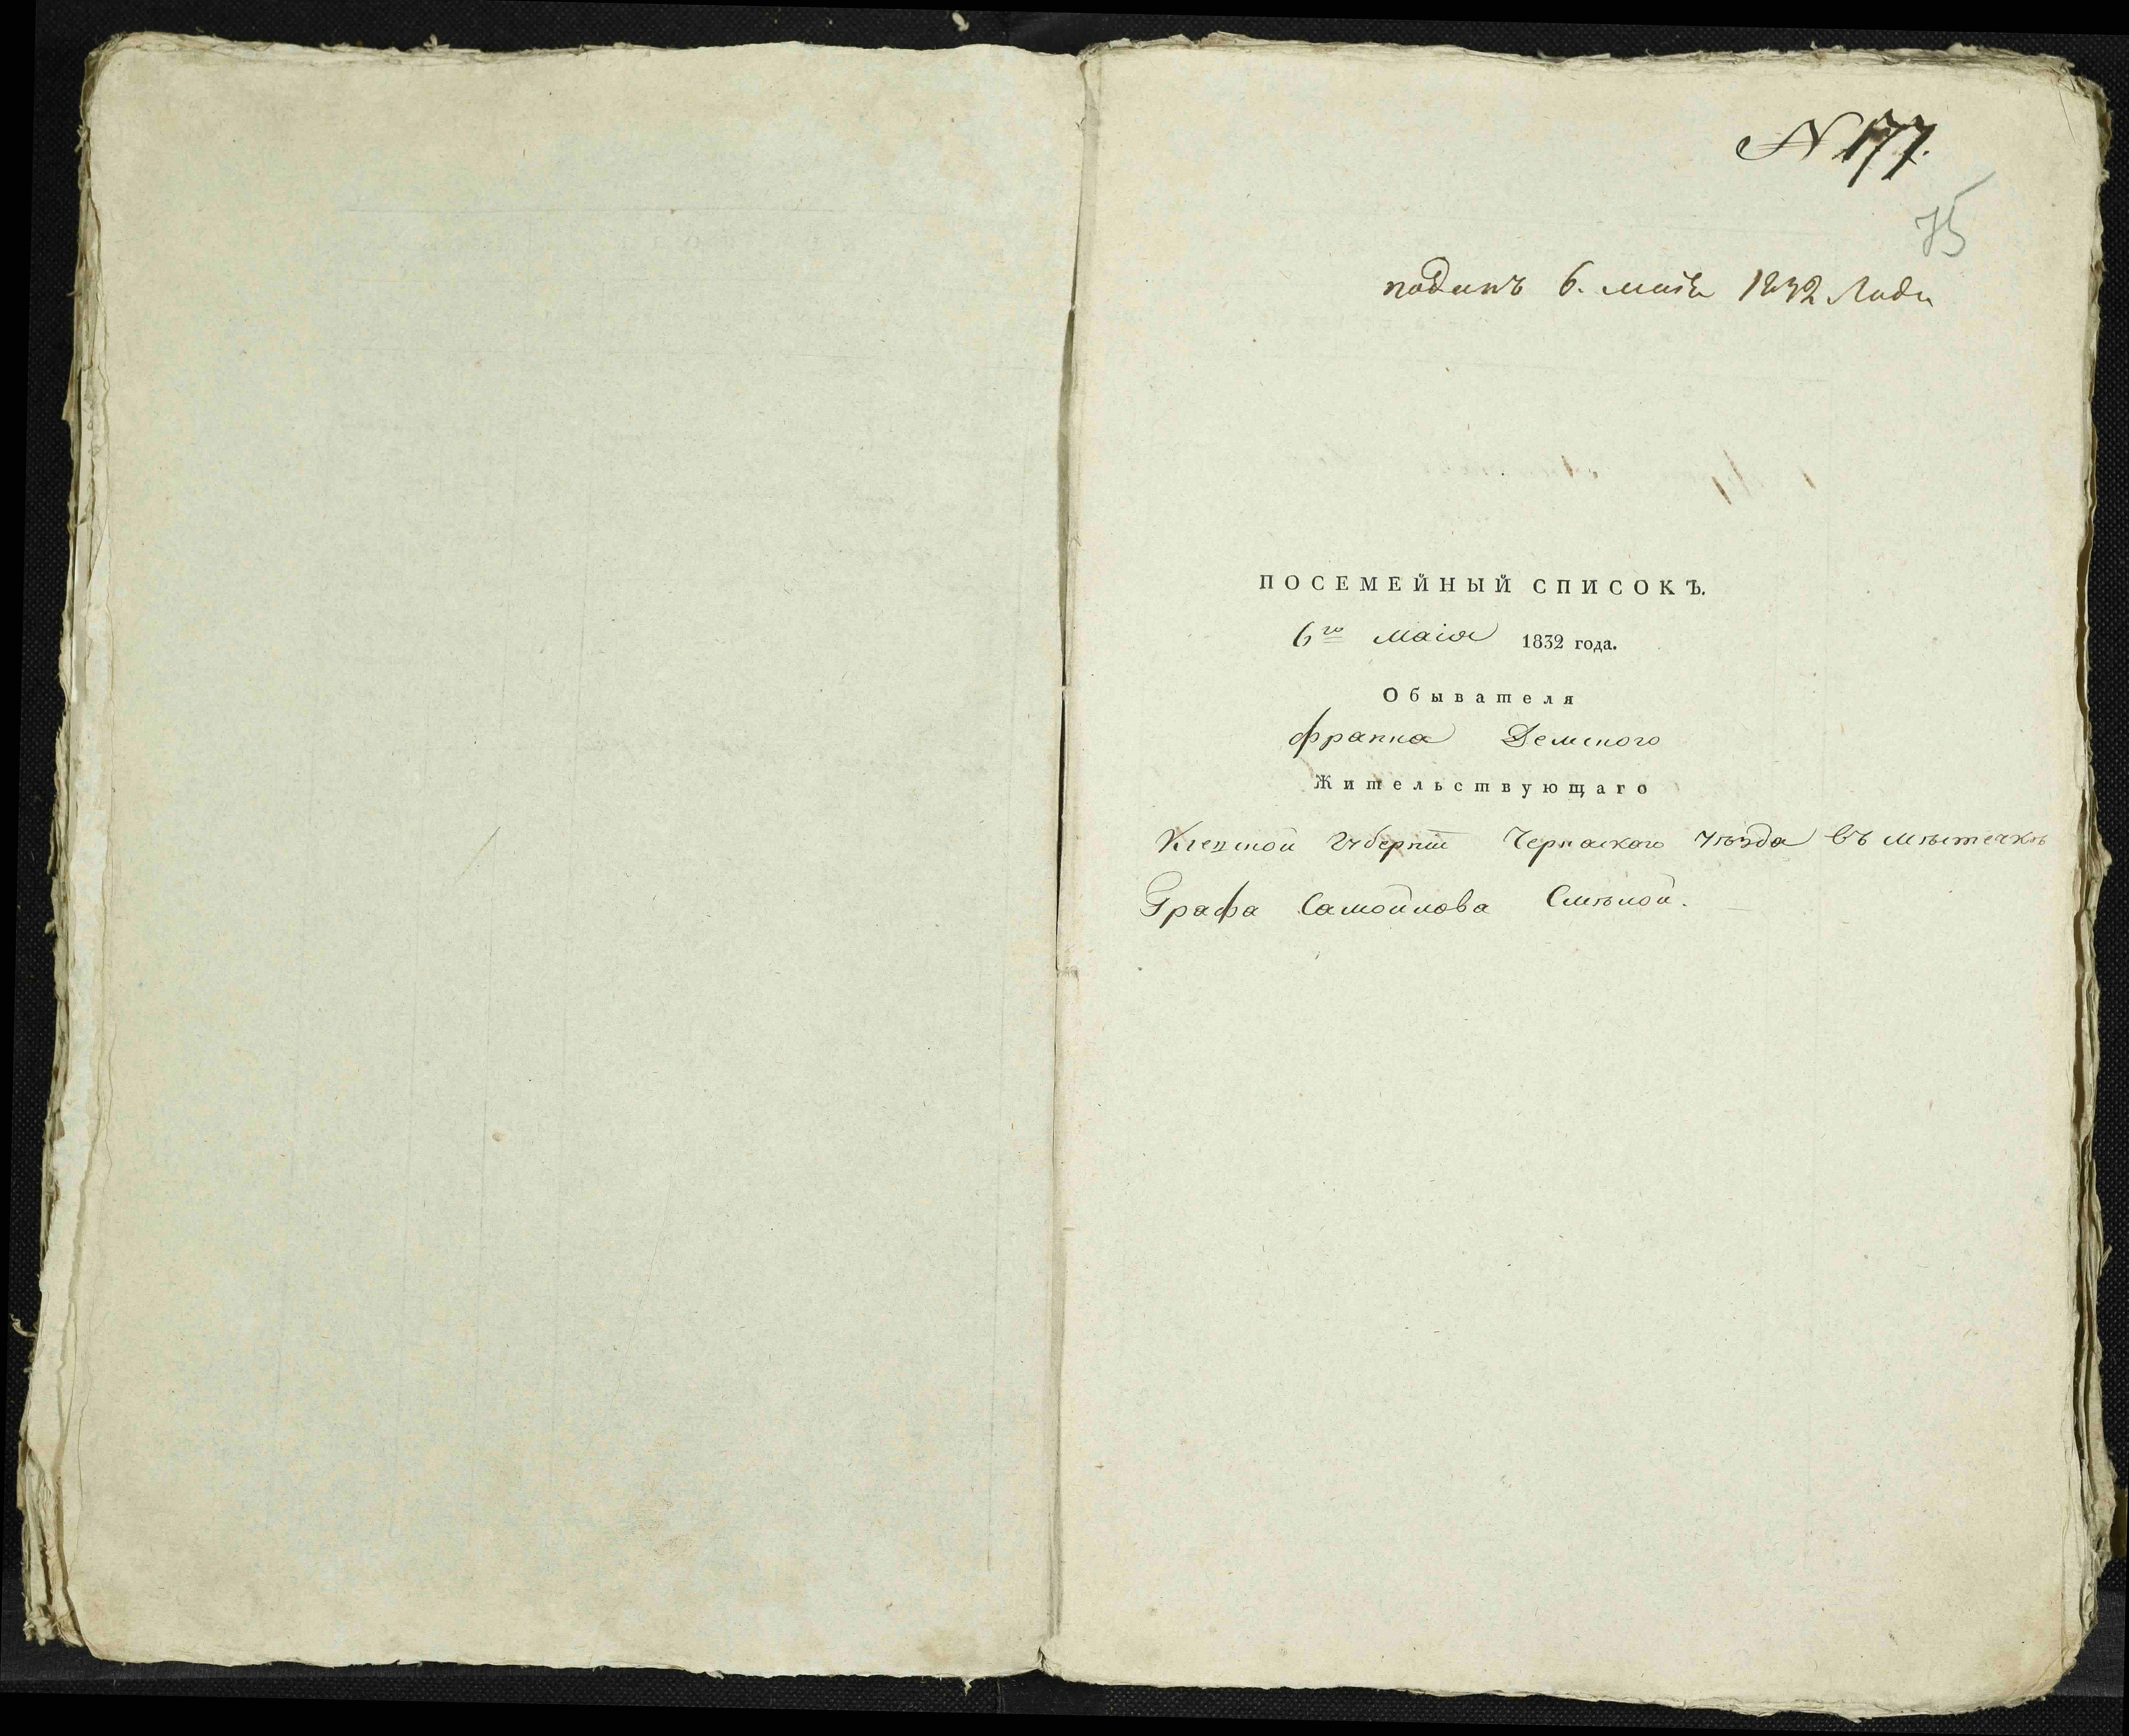 N 177.
75
поданъ 6. маія 1832 Года
ПОСЕМЕЙНЫЙ СПИСОКЪ.
6го маія 1832 года.
Обывателя
франка Демского
Жительствующаго
Киевской Губерніи Черкаского уѣзда въ мѣстечкѣ
Графа Самойлова Смѣлой.